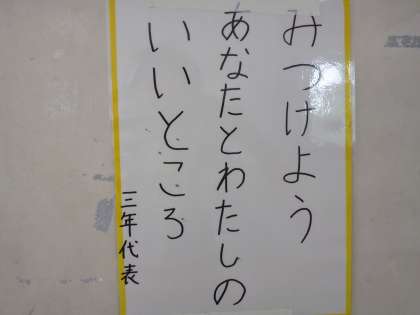 みつけよう
あなたとわたしの
いいところ
三年代表